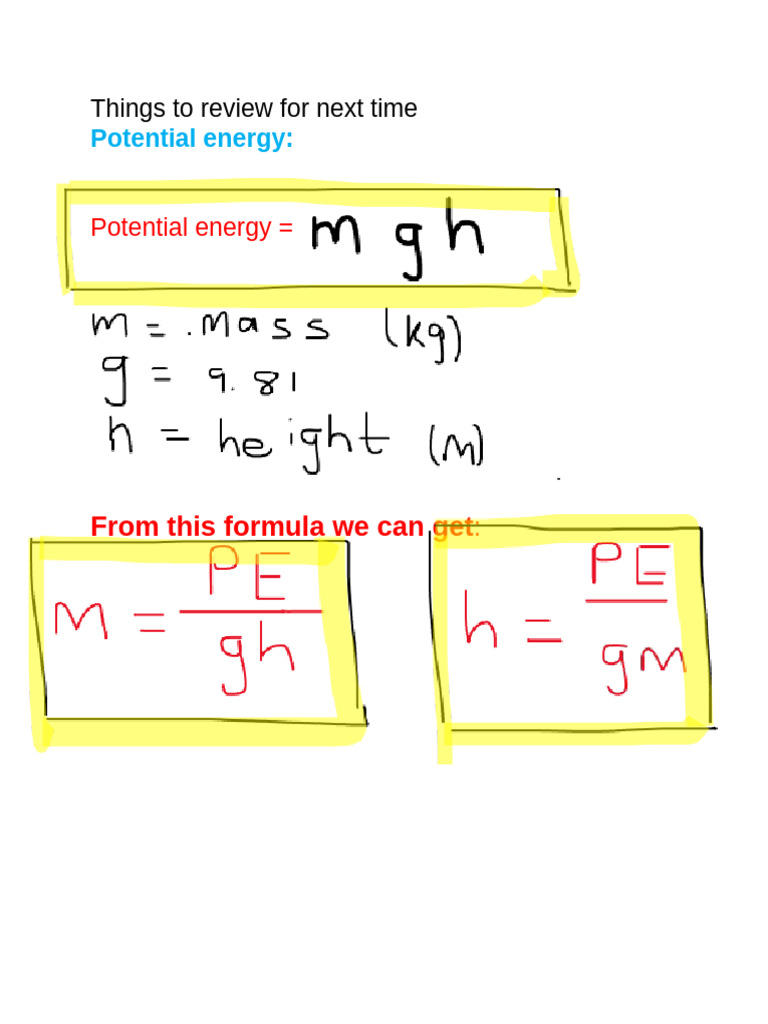 Things to review for next time
Potential energy:
Potential energy = m g h
m = . Mass (kg)
g = 9.81
h = height (m)
From this formula we can get:
M = PE / gh
h = PE / gm